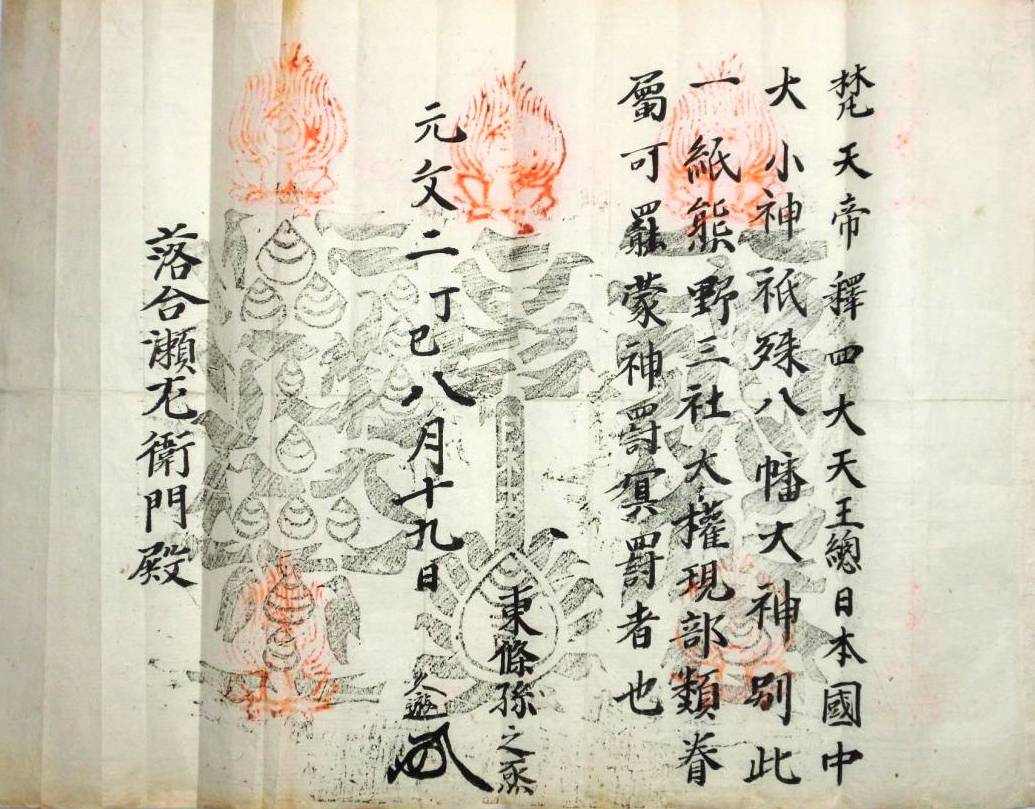 梵天帝釋四大天王總日本國中
大小神祇殊八幡大神別此
一紙熊野三社大權現部類眷
屬可罷蒙神罸冥罸者也
東條孫之丞
元文二丁巳八月十九日
落合瀬左衛門殿